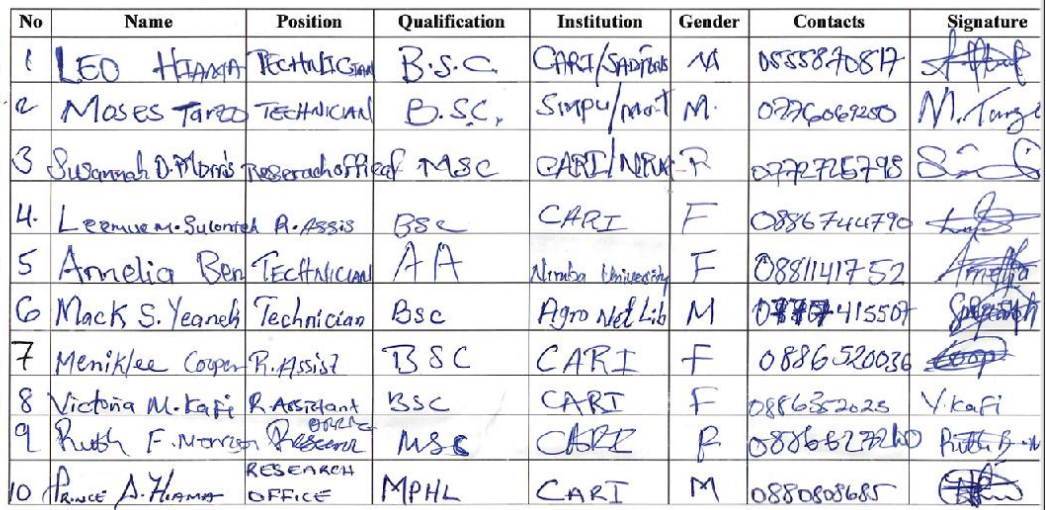 No Name Position Qualification Institution Gender Contacts Signature
1 LEO HIAMA TECHNICIAN B.S.C. CARI/ M 0555870817
2 Moses Tarzo TECHNICIAN B.SC. Simpu/ M. 0776069250 M.
3 Susannah D. Morris Reserach officer MSC CARI/ F 0772725798
4. M. R. Assis BSc CARI F 0886744790
5 Amelia Ben TECHNICIAN AA Nimba University F 0881141752 Amelia
6 Mack S. Yeaneh Technician Bsc Agro Net Lib M 415507
7 Meniklee Cooper R. Assist BSC CARI F 0886520036 Coop
8 Victoria M. Kafi R. Assistant BSC CARI F 0886352023 V. Kafi
9 Ruth F. MSC CARI F Ruth
10 Prince A. Hiama RESEARCH OFFICE MPHL CARI M 0880808685